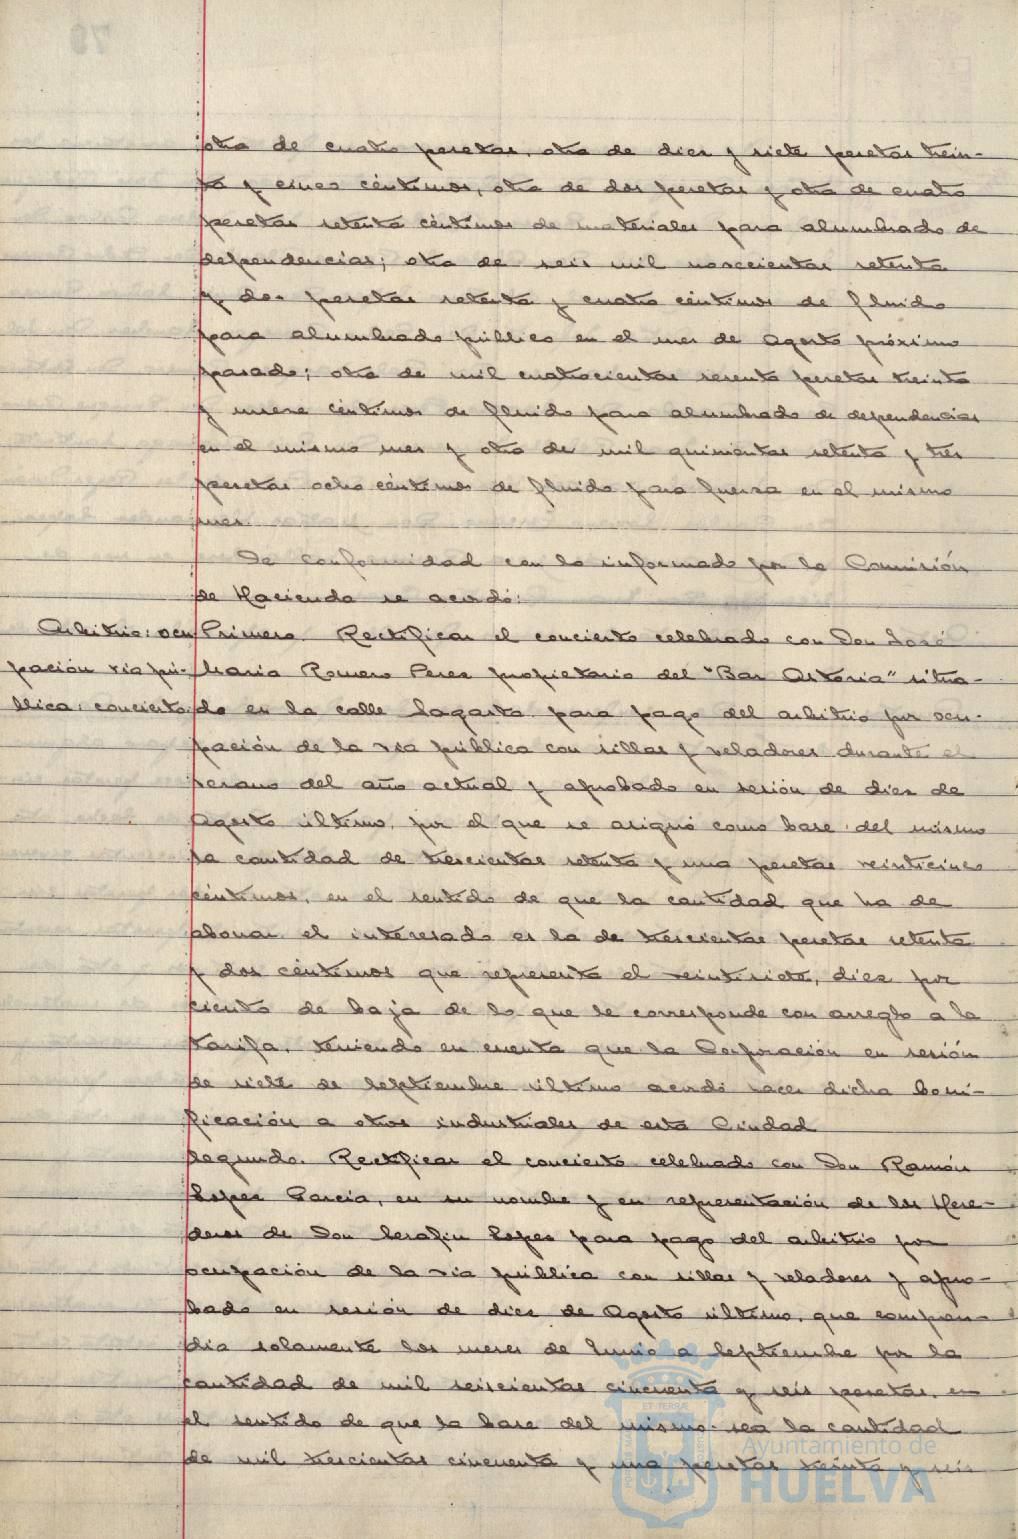 otra de cuatro pesetas, otra de diez y siete pesetas trein-
ta y cinco céntimos, otra de dos pesetas y otra de cuatro
pesetas setenta céntimos de materiales para alumbrado de
dependencias; otra de seis mil novecientas setenta
y dos pesetas setenta y cuatro céntimos de fluido
para alumbrado público en el mes de Agosto próximo
pasado; otra de mil cuatrocientas sesenta pesetas treinta
y nueve céntimos de fluido para alumbrado de dependencias
en el mismo mes y otra de mil quinientas setenta y tres
pesetas ocho céntimos de fluido para fuerza en el mismo
mes.
De conformidad con lo informado por la Comisión
de Hacienda se acordó:
Arbitrio: ocu
pación via pú-
blica: concierto.
Primero. Rectificar el concierto celebrado con Don José
Maria Romero Perez propietario del "Bar Astoria" situa-
do en la calle Sagasta para pago del arbitrio por ocu-
pación de la via pública con sillas y veladores durante el
verano del año actual y aprobado en sesión de diez de
Agosto último, por el que se asignó como base del mismo
la cantidad de trescientas setenta y una pesetas veinticinco
céntimos, en el sentido de que la cantidad que ha de
abonar el interesado es la de trescientas pesetas setenta
y dos céntimos que representa el veintisiete, diez por
ciento de baja de lo que le corresponde con arreglo a la
tarifa, teniendo en cuenta que la Corporación en sesión
de siete de Septiembre último acordó hacer dicha boni-
ficación a otros industriales de esta Ciudad
Segundo. Rectificar el concierto celebrado con Don Ramón
Lopez García, en su nombre y en representación de los Here-
deros de Don Serafin Lopez para pago del arbitrio por
ocupación de la via pública con sillas y veladores y apro-
bado en sesión de diez de Agosto último, que compren-
dia solamente los meses de Junio a Septiembre por la
cantidad de mil seiscientas cincuenta y seis pesetas, en
el sentido de que la base del mismo sea la cantidad
de mil trescientas cincuenta y una pesetas treinta y seis
Ayuntamiento de
HUELVA